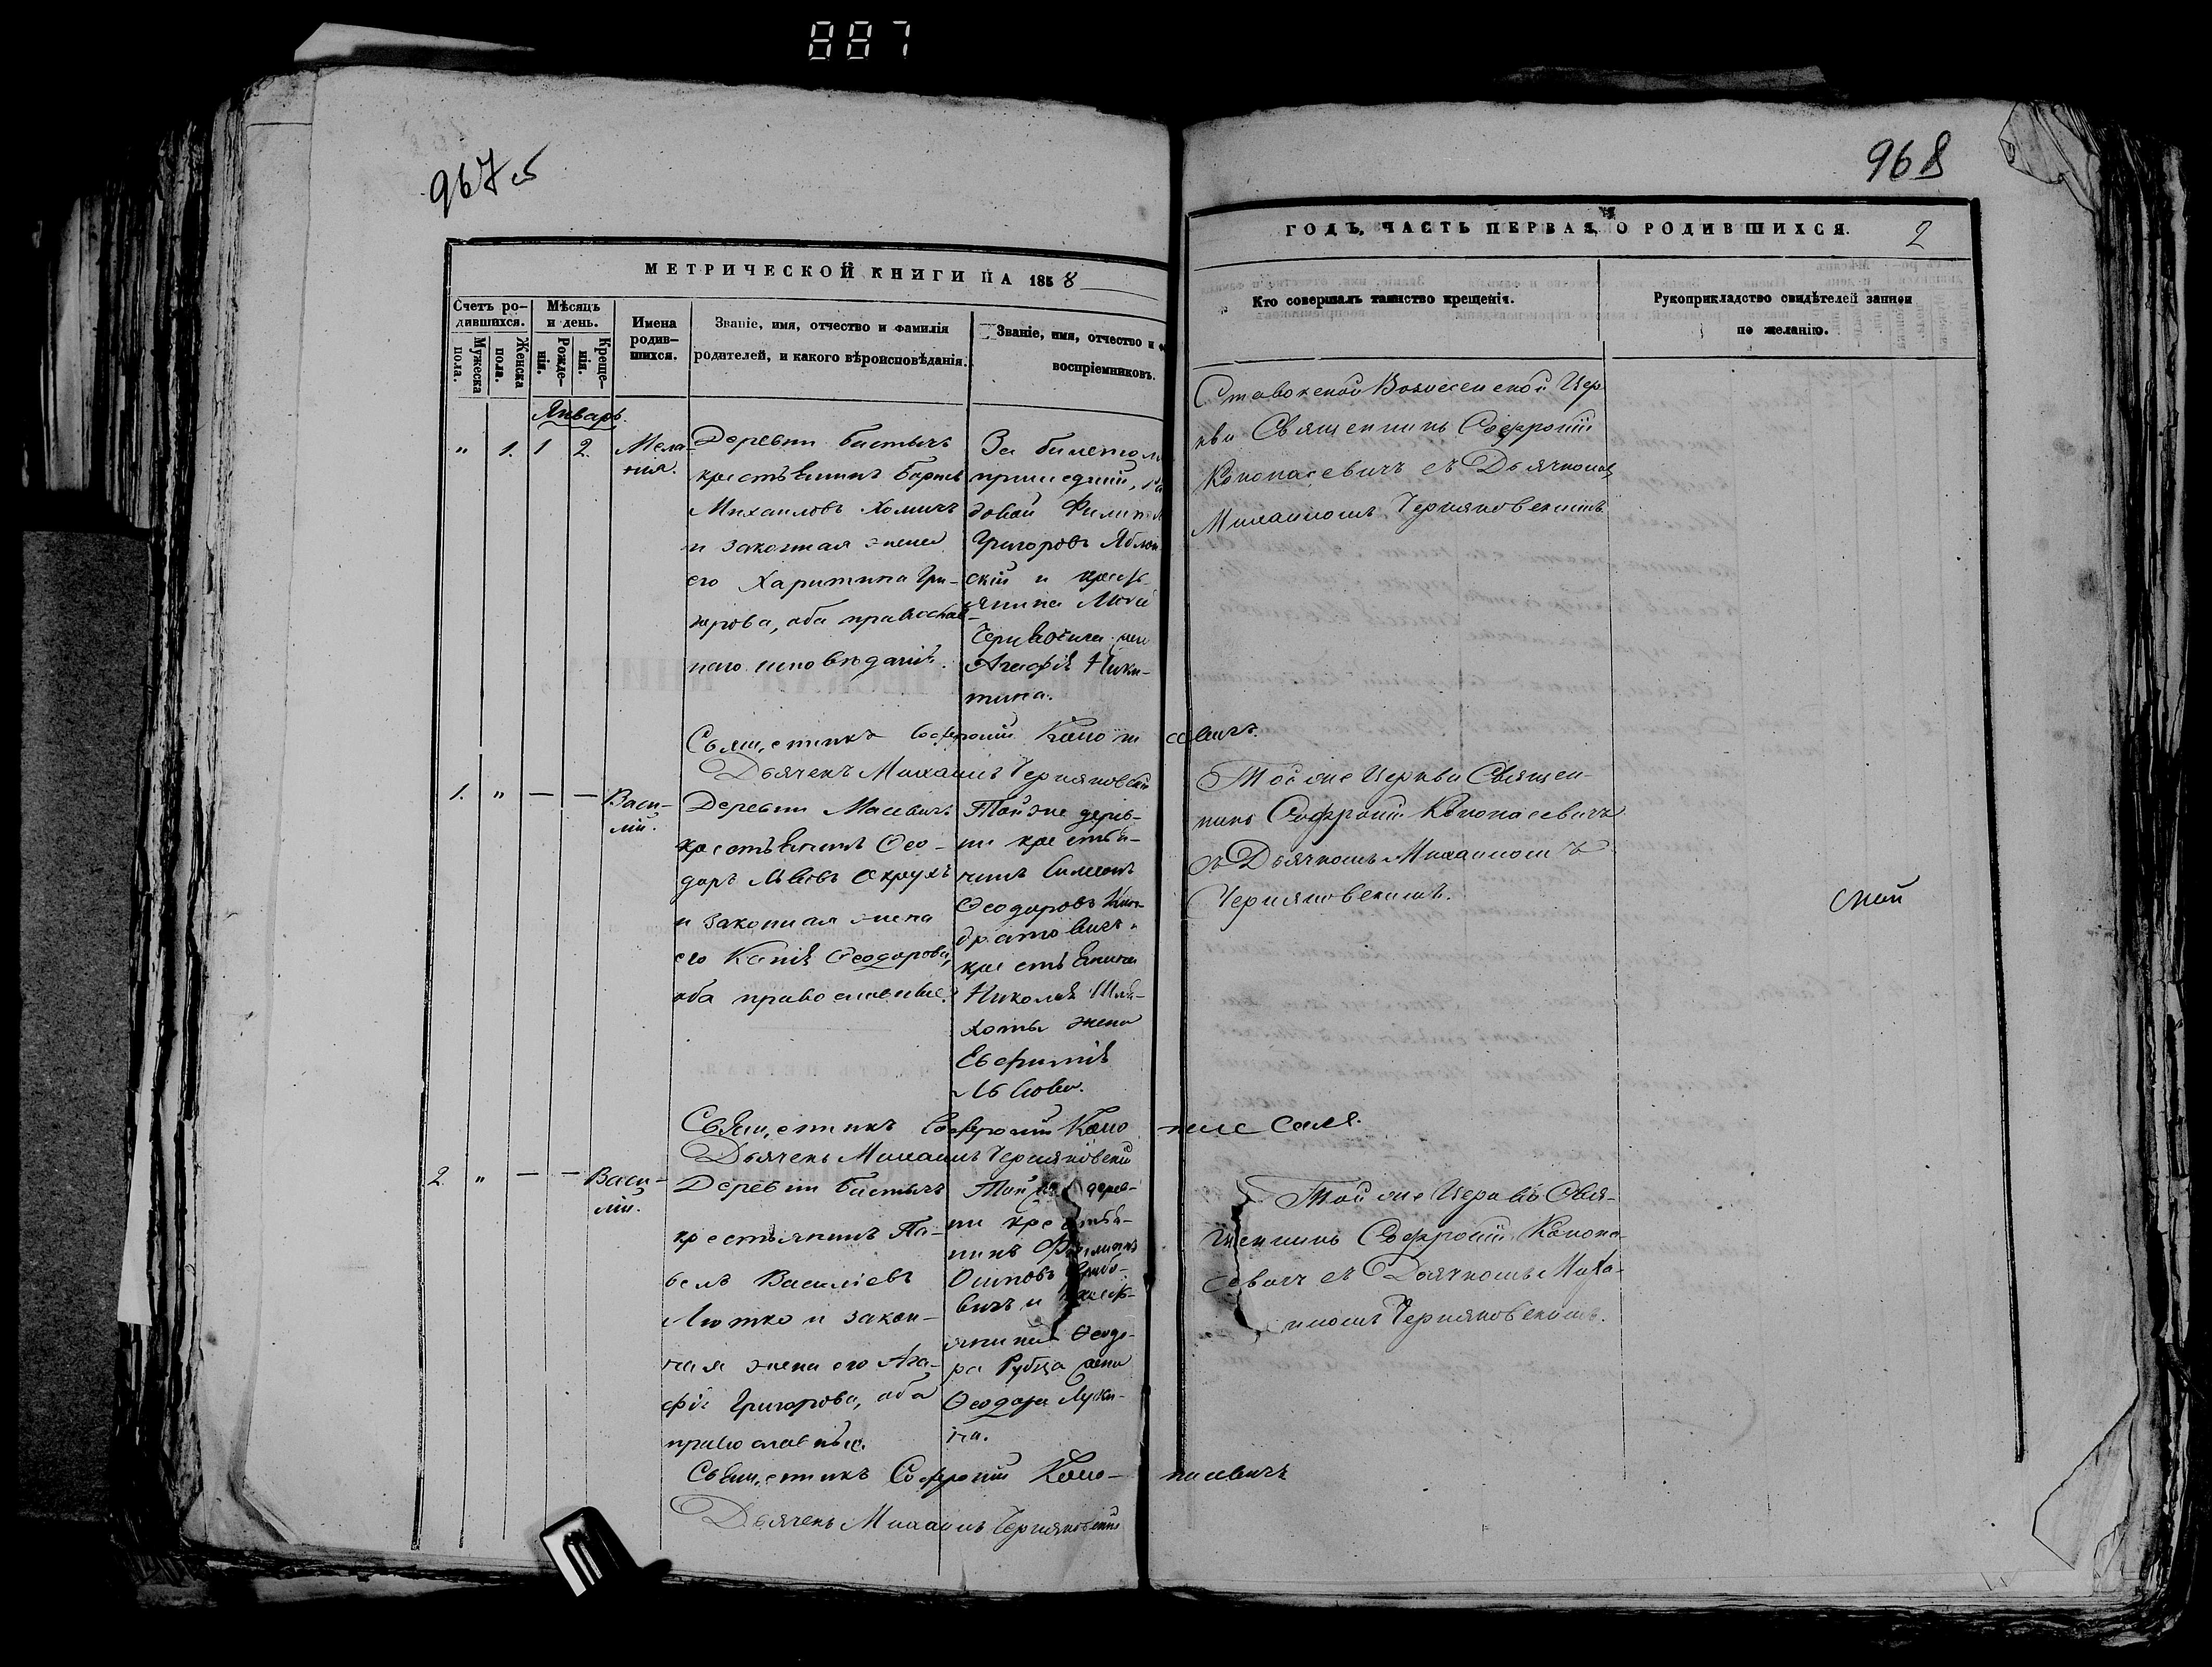 887
967 об
968
МЕТРИЧЕСКОЙ КНИГИ НА 1858
ГОДЪ, ЧАСТЬ ПЕРВАЯ, О РОДИВШИХСЯ.
2
Счетъ ро-
дившихся.
Мужеска
пола.
Женска
пола.
Мѣсяцъ
и день.
Рожде-
нія.
Креще-
нія.
Имена
родив-
шихся.
Званіе, имя, отчество и фамилія
родителей, и какого вѣроисповѣданія.
Званіе, имя, отчество и
воспріемниковъ.
Кто совершалъ таинство крещенія.
Рукоприкладство свидѣтелей записи
по желанію.
Январь.
" 1. 1 2.
Мела-
нія.
Деревни
крестьянинъ Борисъ
Михаиловъ Хомичъ
и законная жена
его Харитина Гри-
горова, оба православ-
наго исповѣданія.
За билетомъ
пришедшій,
Филипъ
Григоровъ
скій и кресть-
янина
жена
Агафія Ники-
тина.
Ставокской Вознесенской Цер-
кви Священникъ Софроній
Конопасевичъ съ Дьячкомъ
Михаиломъ Черняковскимъ
Священникъ Софроній Конопасевичъ.
Дьячекъ Михаилъ Черняковскій
1. " — —
Васи-
лій.
Деревни Масевичъ
крестьянинъ Ѳео-
доръ
и законная жена
его Ѳеодорова,
оба православные.
Той же дерев-
ни крестья-
нинъ Симеонъ
Ѳеодоровъ Кон-
дратовичъ и
крестьянина
Николая Шля-
хоты жена
Евфимія
Львова.
Той же Церкви Священ-
никъ Софроній Конопасевичъ
съ Дьячкомъ Михаиломъ
Черняковскимъ.
ской
Священникъ Софроній Коно
Дьячекъ Михаилъ Черняковскій
2. " — —
Васи-
лій.
Деревни
крестьянинъ Па-
велъ Василіевъ
Лютко и закон-
ная жена его Ага-
фія Григорова, оба
православные.
Той же дерев-
ни крестья-
нинъ Филипъ
Осиповъ
вичъ и кресть-
янина Ѳеодо-
ра Рубца жена
Ѳеодора Луки-
на.
Той же Церкви Свя-
щенникъ Софроній Конопа-
севичъ съ Дьячкомъ Миха-
иломъ Черняковскимъ.
Священникъ Софроній Коно-пасевичъ
Дьячекъ Михаилъ Черняковскій